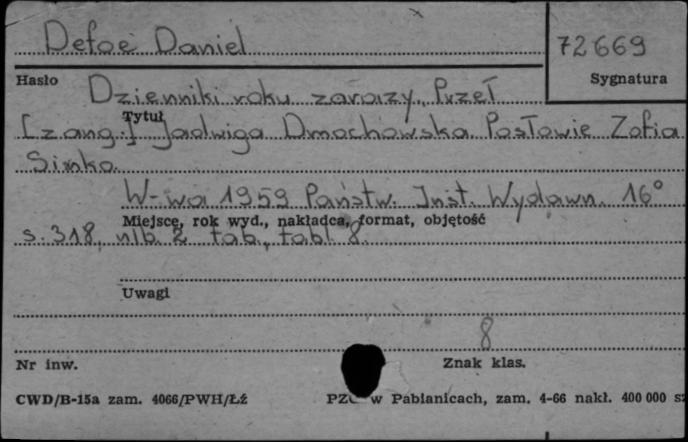 Defoe Daniel
72669
Hasło
Sygnatura
Dzienniki roku zarazy. Przeł
Tytuł
[z ang.] Jadwiga Dmochowska. Posłowie Zofia
Sinko.
W-wa 1959 Państw. Inst. Wydawn. 16°
Miejsce, rok wyd., nakładca, format, objętość
s. 318, nlb. 2 tab., tabl. 8.
Uwagi
8
Nr inw.
Znak klas.
CWD/B-15a zam. 4066/PWH/Łź
w Pabianicach, zam. 4-66 nakł. 400 000